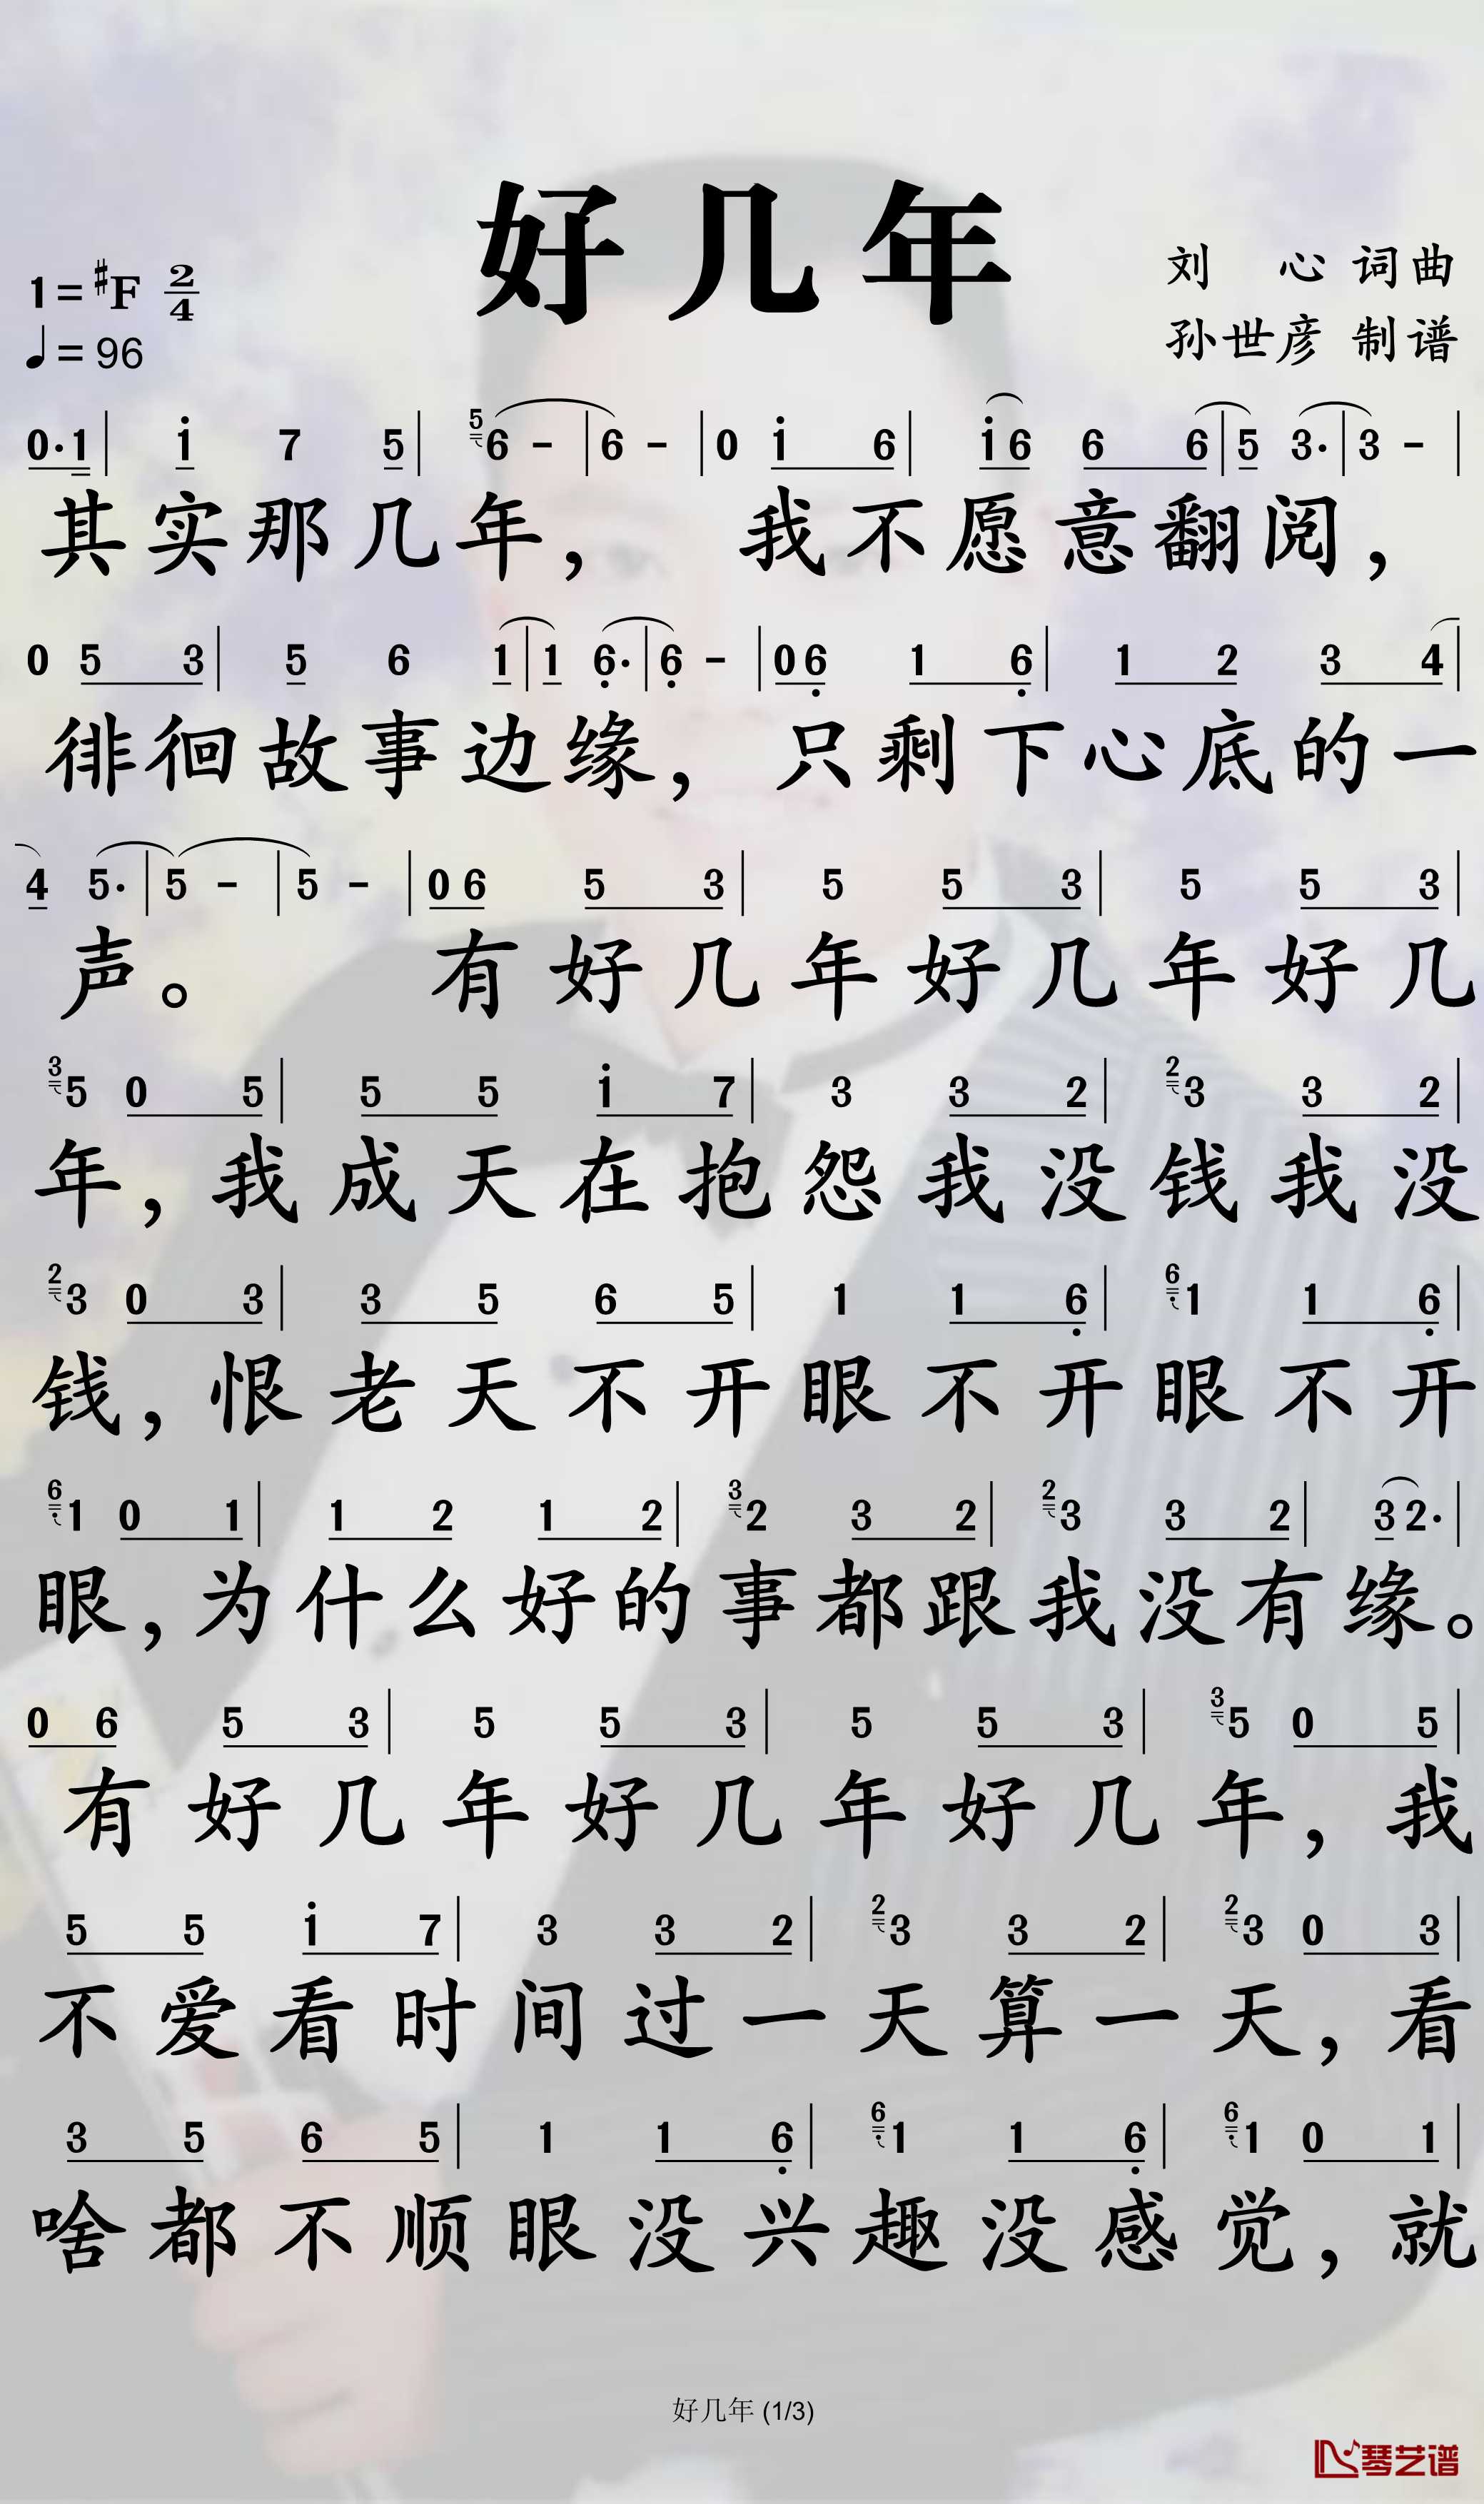 好几年
1=#F 2/4
♩=96
刘 心 词曲
孙世彦 制谱
0·1 | i 7 5 | 5 6 - | 6 - | 0 i 6 | i 6 6 6 | 5 3· | 3 - |
其实那几年， 我不愿意翻阅，
0 5 3 | 5 6 1 | 1 6̣· | 6̣ - | 0 6̣ 1 6̣ | 1 2 3 4 |
徘徊故事边缘，只剩下心底的一
4 5· | 5 - | 5 - | 0 6 5 3 | 5 5 3 | 5 5 3 |
声。 有好几年好几年好几
3 5 0 5 | 5 5 i 7 | 3 3 2 | 2 3 3 2 |
年，我成天在抱怨我没钱我没
2 3 0 3 | 3 5 6 5 | 1 1 6̣ | 6̣ 1 1 6̣ |
钱，恨老天不开眼不开眼不开
6̣ 1 0 1 | 1 2 1 2 | 3 2 3 2 | 2 3 3 2 | 3 2· |
眼，为什么好的事都跟我没有缘。
0 6 5 3 | 5 5 3 | 5 5 3 | 3 5 0 5 |
有好几年好几年好几年，我
5 5 i 7 | 3 3 2 | 2 3 3 2 | 2 3 0 3 |
不爱看时间过一天算一天，看
3 5 6 5 | 1 1 6̣ | 6̣ 1 1 6̣ | 6̣ 1 0 1 |
啥都不顺眼没兴趣没感觉，就
好几年 (1/3)
琴艺谱